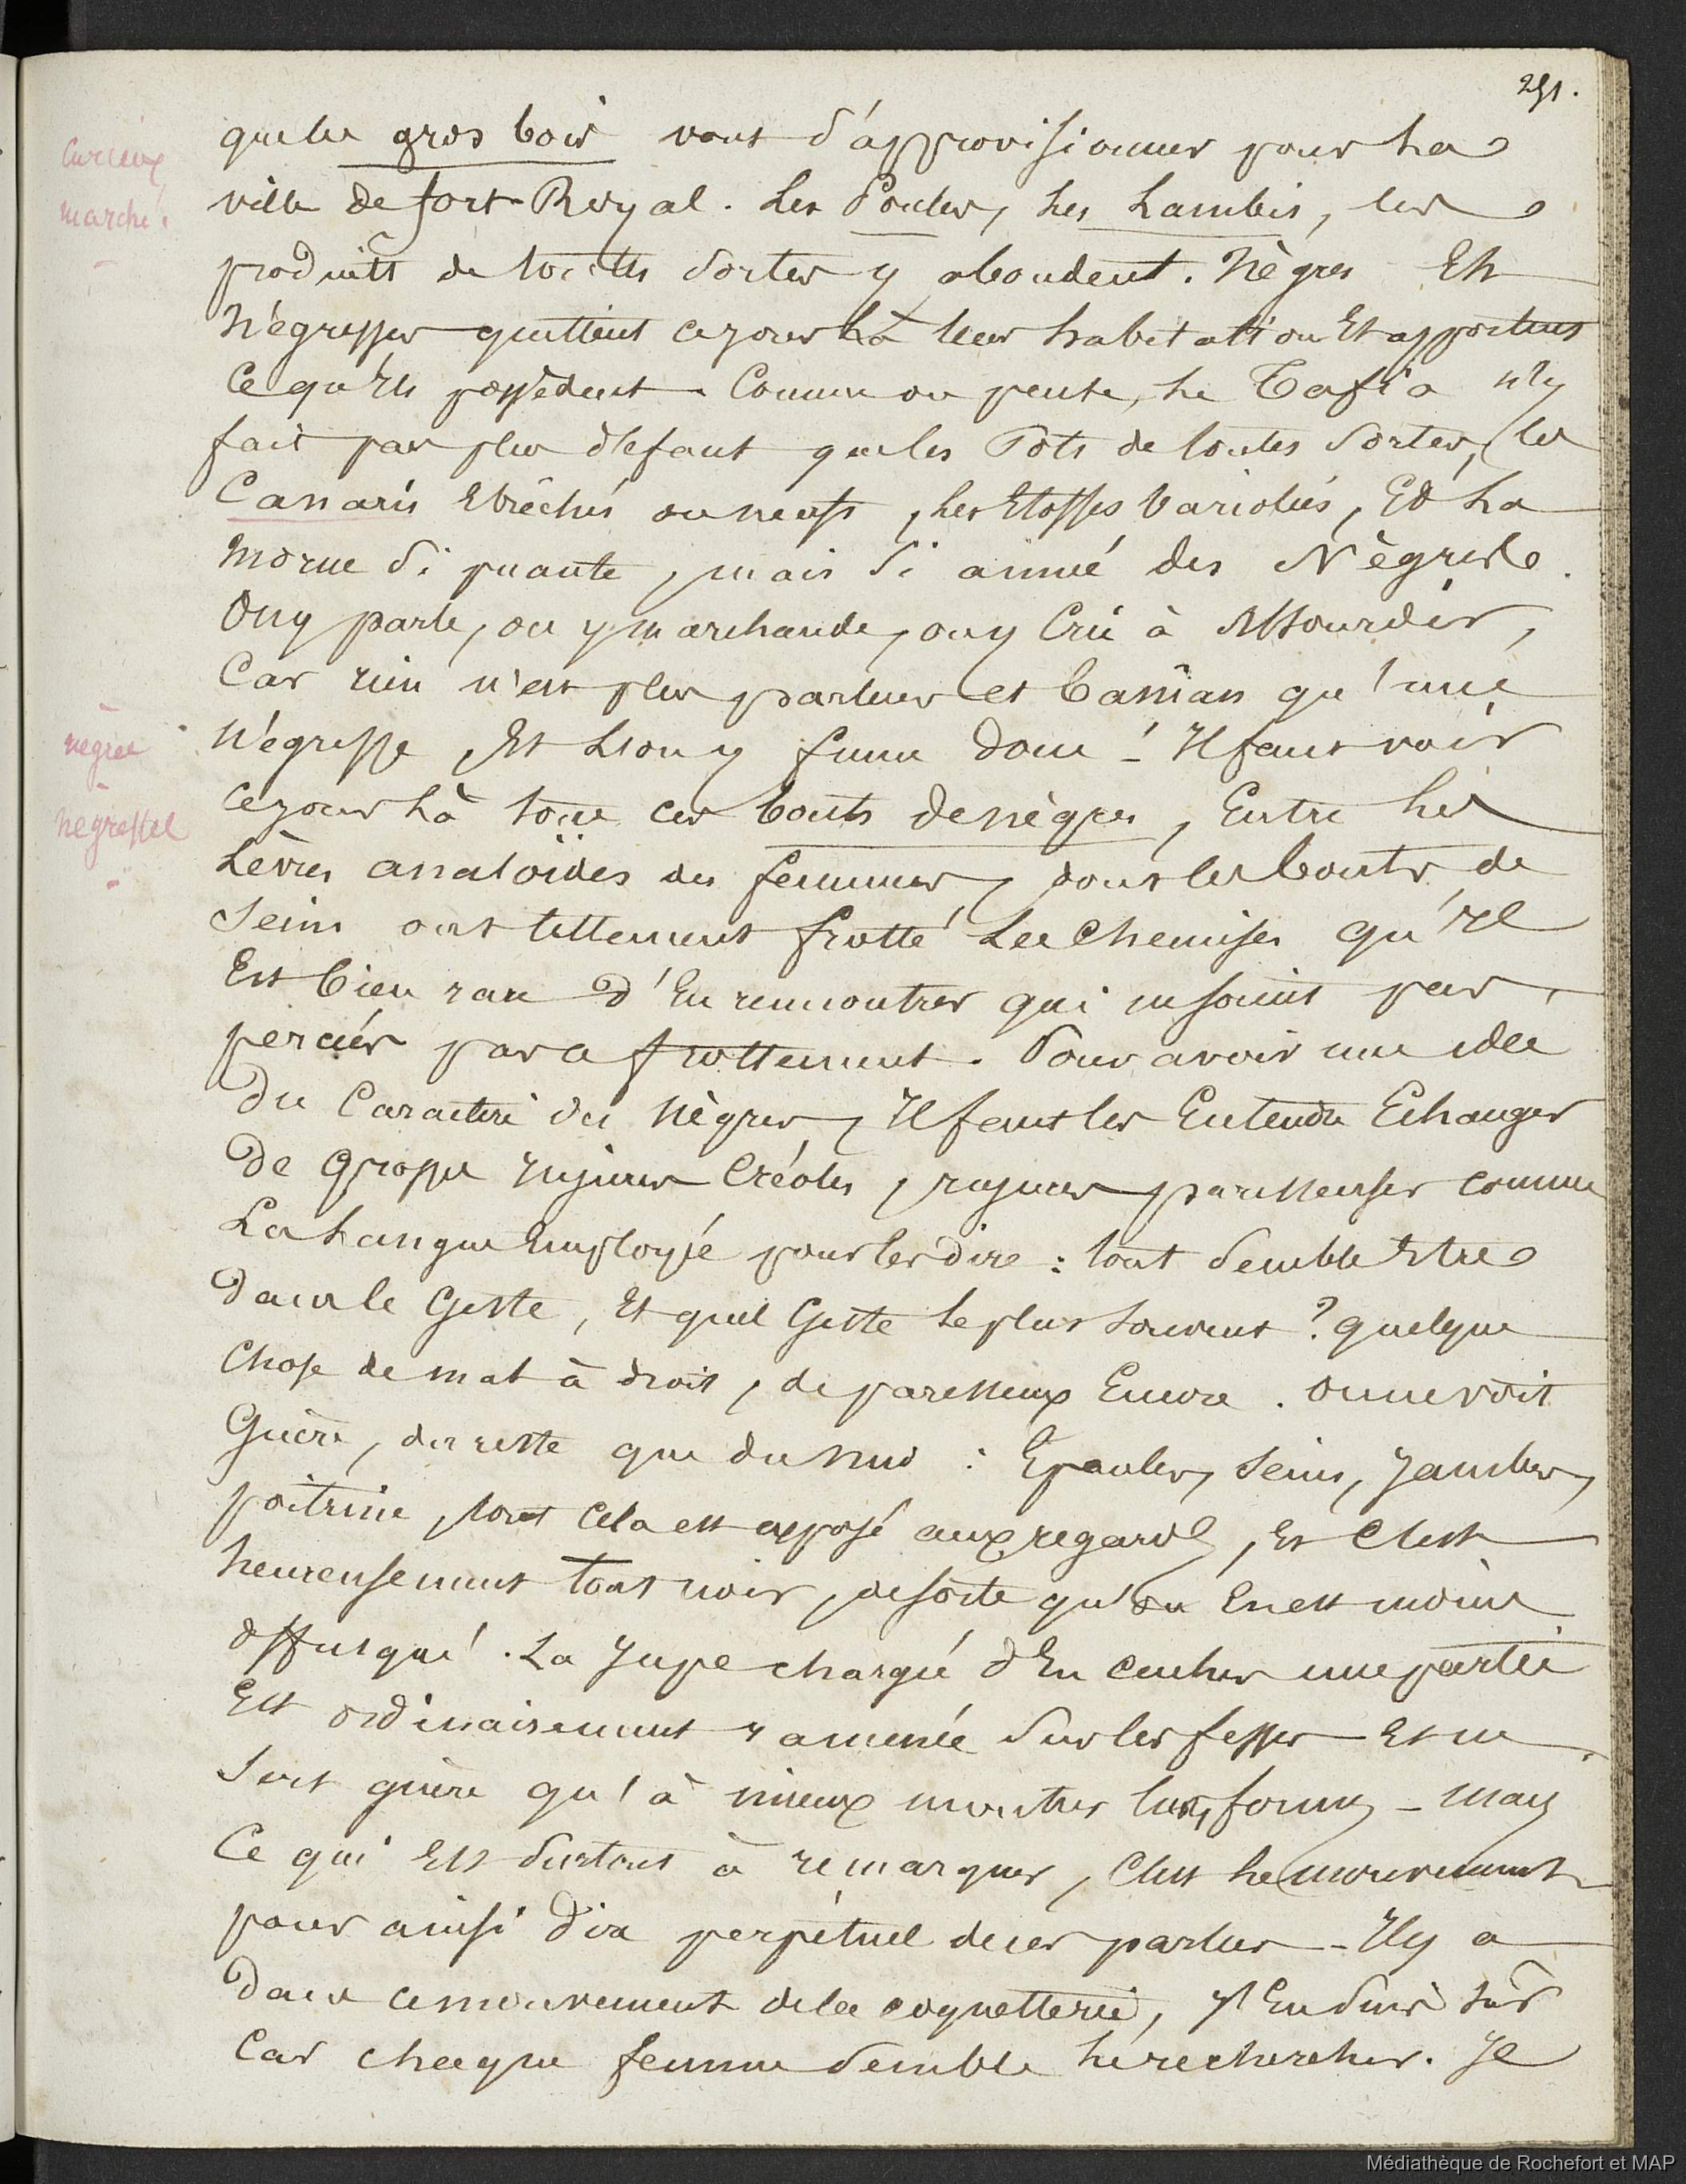 291.
Curieux
marché.
que les gros bois vont s'approvisionner pour La
ville de fort-Royal. Les Poules, Les Lambis, les
produits de toutes sortes y abondent. Nègres Et
Négresses quittent ce jour Là leur habitation Et apportent
Ce qu'Ils possèdent. Comme on pense, Le Tafia n'y
fait pas plus défaut que les Pots de toutes sortes, les
Canaris Ebréchés ou neufs, Les Etoffes bariolées, Et La
Morue si puante, mais si aimée des Nègres.
On y parle, on y marchande, on y Crie à Assourdir,
Car rien n'est plus parleur et
qu'une
nègres
Négresse, Et L'on y fume donc! Il faut voir
ce jour Là tous ces bouts de nègres, Entre Les
négresses
Lèvres des femmes, dont les bouts de
Seins ont tellement frotté Les Chemises qu'Il
Est bien rare d'En rencontrer qui ne soient pas
percées par ce frottement. Pour avoir une idée
Du Caractère des Nègres, Il faut les Entendre Echanger
De Grosses injures Créoles, injures paresseuses comme
La Langue Employée pour les dire : tout semble Etre
Dans le Geste, Et quel Geste Le plus souvent? quelque
Chose de mal à droit, de paresseux Encore. On ne voit
Guère, du reste que du nud : Epaules, Seins, Jambes,
poitrine, tout Cela est exposé aux regards, Et C'est
heureusement tout noir, de sorte qu'on En est moins
offusqué. La Jupe chargée d'En cacher une partie
Est ordinairement ramenée Sur les fesses Et ne
Sert guère qu'à mieux montrer les formes - Mais
Ce qui Est surtout à remarquer, C'est Le mouvement
pour ainsi dire perpétuel de ces parties - Il y a
Dans ce mouvement de la coquetterie, J'En suis sûr
Car chaque femme Semble Le rechercher. Je
Médiathèque de Rochefort et MAP